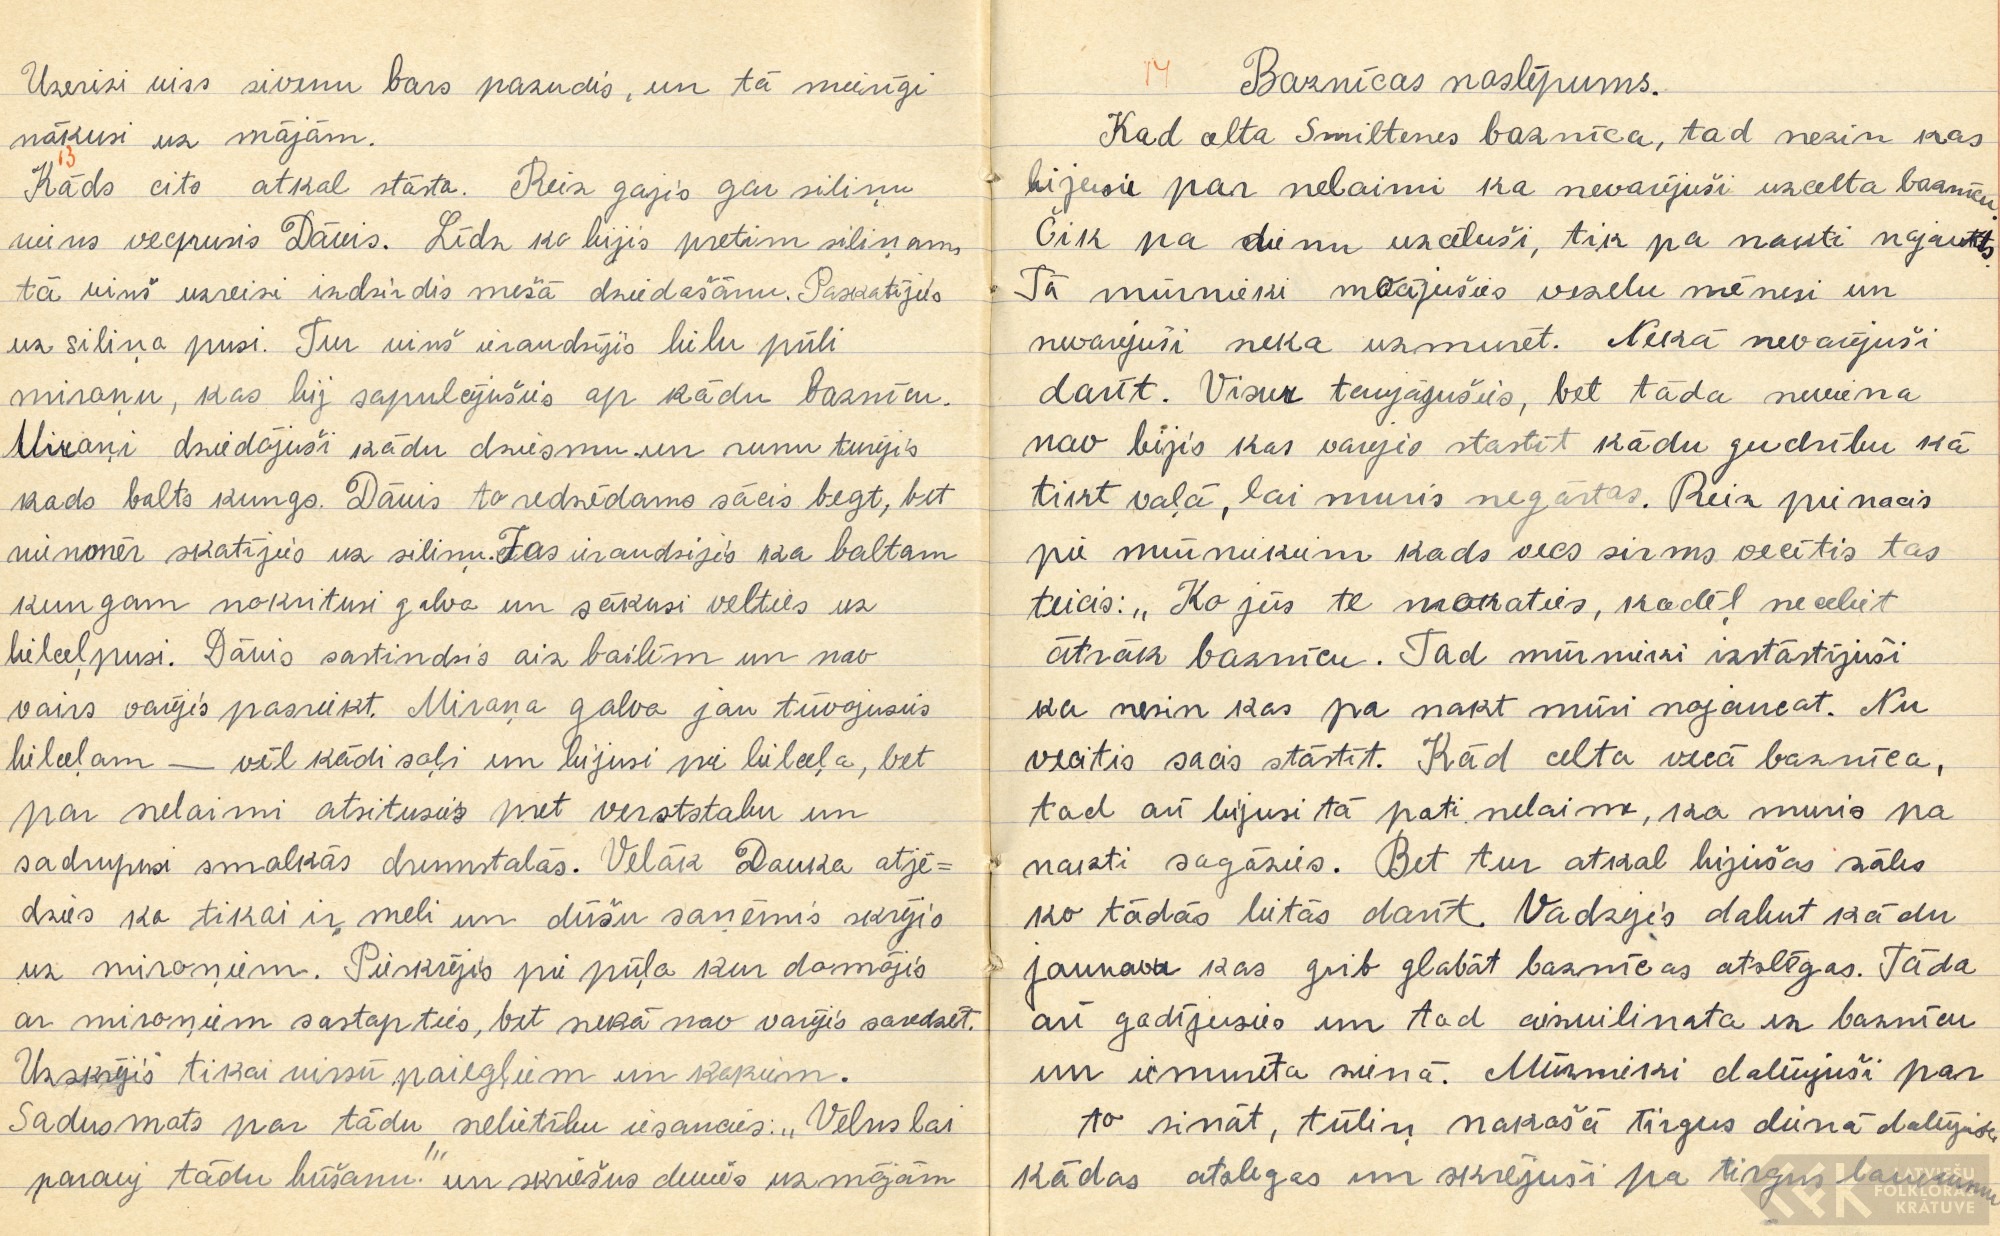 Uzreizi viss sivenu bars pazudis, un tā mierīgi
nākusi uz mājām.
13
Kāds cits atkal stāsta. Reiz gajis gar siliņu
viens vecpuisis Dāvis. Līdz ko bijis pretim siliņam,
tā viņš uzreizi izdzirdis mežā dziedašānu. Paskatījies
uz siliņa pusi. Tur viņš ieraudzījis lielu pūli
miroņu, kas bij sapulcējušies ap kādu baznīcu.
Miroņi dziedājuši kādu dziesmu un runu turējis
kads balts kungs. Dāvis to redzēdams sācis begt, bet
vienmēr skatījies uz siliņu. Tas ieraudzijis ka baltam
kungam nokritusi galva un sākusi velties uz
lielceļpusi. Dāvis sastindzis aiz bailēm un nav
vairs varējis pasreikt. Miroņa galva jau tūvojusies
lielceļam — vēl kādi soļi un bijusi pie lielceļa, bet
par nelaimi atsitusies pret verststabu un
sadrupusi smalkās drumstalās. Velāk Dauka atjē=
dzies ka tikai ir meli un dūšu saņēmis skrējis
uz miroņiem. Pieskrējis pie pūļa kur domājis
ar miroņiem sastapties, bet nekā nav varējis saredzēt.
Uzskrējis tikai virsū paiegļiem un kokiem.
Sadusmots par tādu nelietību iesaucies: „Velns lai
parauj tādu būšanu!" un skriešus devies uz mājām
14
Baznīcas noslēpums.
Kad celta Smiltenes baznīca, tad nezin kas
bijusi par nelaimi ka nevarējuši uzcelta baznīcu.
Čik pa dienu uzcēluši, tik pa nakti nojaukts.
Tā mūrnieki mocījušies veselu mēnesi un
nevarējuši neka uzmurēt. Nekā nevarējuši
darīt. Visur taujājušies, bet tāda neviena
nav bijis kas varejis stastīt kādu gudrību kā
tikt vaļā, lai muris negāztas. Reiz pienacis
pie mūrniekiem kads vecs sirms vecītis tas
teicis: „Ko jūs te mokaties, kadēļ neceliet
ātrāk baznīcu. Tad mūrnieki izstāstījuši
ka nesin kas pa nakt mūri nojaucat. Nu
vecitis sacis stāstīt. Kād celta vecā baznīca,
tad arī bijusi tā pati nelaime, ka muris pa
nakti sagāzies. Bet tur atkal bijušas zāles
ko tādās lietās darīt. Vadzējis dabut kādu
jaunavu kas grib glabāt baznīcas atslēgas. Tāda
arī gadījusies un tad aizvilinata uz baznīcu
un iemurēta sienā. Mūrnieki dabūjuši par
to sināt, tūliņ nakošā tirgus dienā dabūjuši
kādas atslegas un skrējuši pa tirgus laukumu
LATVIEŠU
FOLKLORAS
KRĀTUVE